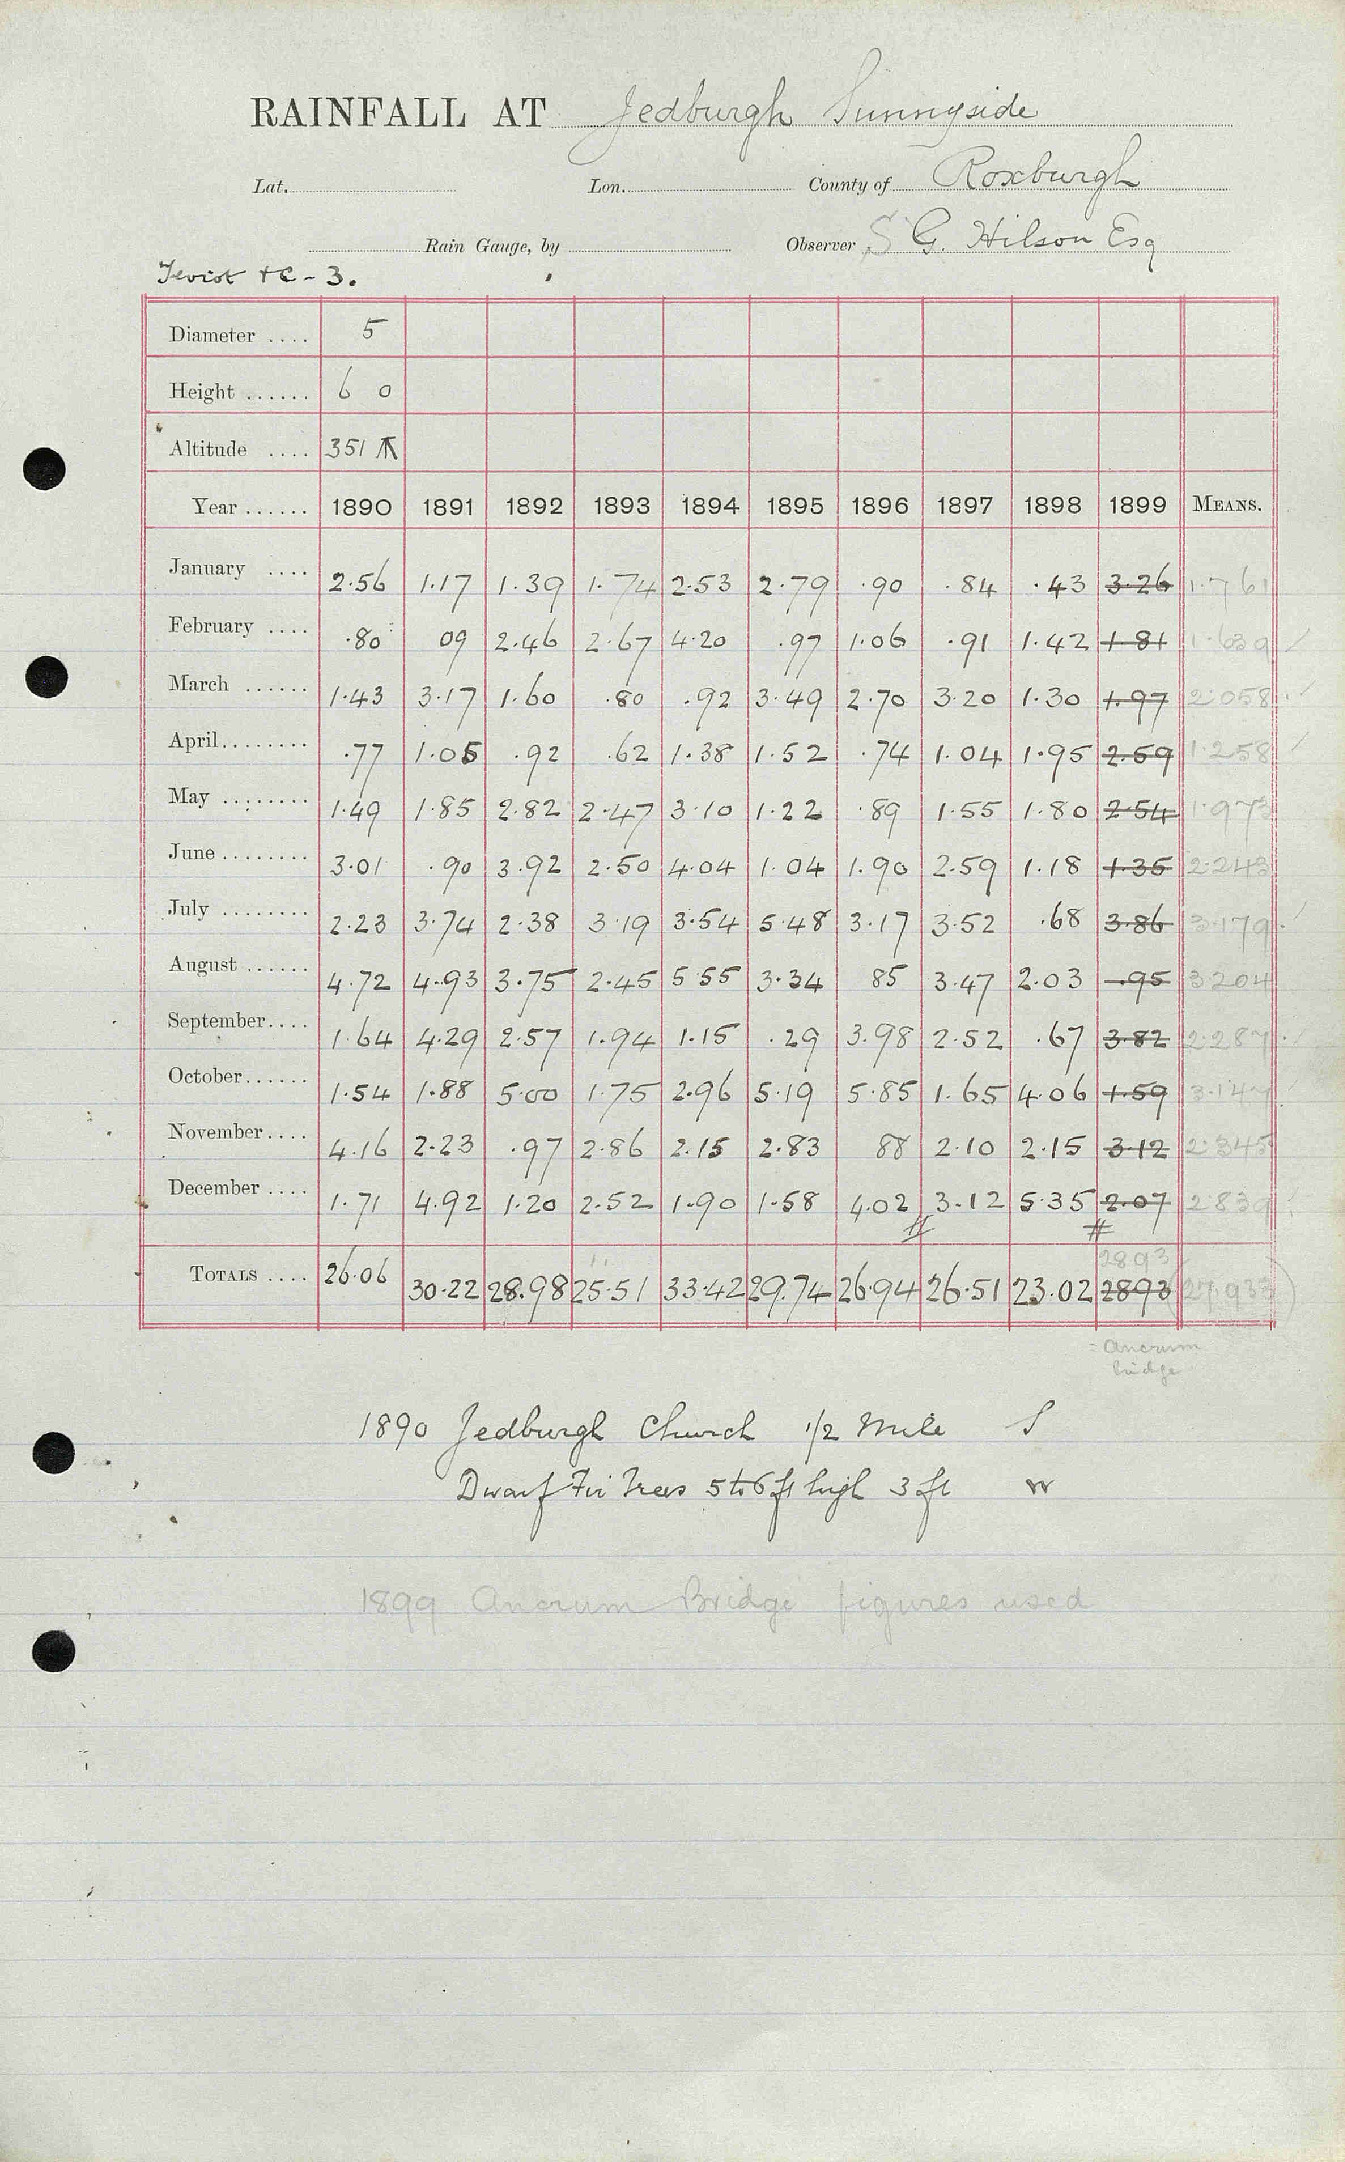 RAINFALL AT Jedburgh Sunnyside
Lat. Lon. County of Roxburgh
Rain Gauge, by Observer S G. Hilson Esq
Teviot &c - 3.
Diameter .... 5
Height ...... 6 0
Altitude .... 351
Year ...... 1890 1891 1892 1893 1894 1895 1896 1897 1898 1899 MEANS.
January .... 2.56 1.17 1.39 1.74 2.53 2.79 .90 .84 .43 3.26 1.761
February .... .80 09 2.46 2.67 4.20 .97 1.06 .91 1.42 1.81 1.639
March ...... 1.43 3.17 1.60 .80 .92 3.49 2.70 3.20 1.30 1.97 2.058
April........ .77 1.05 .92 .62 1.38 1.52 .74 1.04 1.95 2.59 1.258
May ........ 1.49 1.85 2.82 2.47 3.10 1.22 .89 1.55 1.80 2.54 1.973
June ........ 3.01 .90 3.92 2.50 4.04 1.04 1.90 2.59 1.18 1.35 2.243
July ........ 2.23 3.74 2.38 3.19 3.54 5.48 3.17 3.52 .68 3.86 3.179
August ...... 4.72 4.93 3.75 2.45 5.55 3.34 85 3.47 2.03 .95 3.204
September.... 1.64 4.29 2.57 1.94 1.15 .29 3.98 2.52 .67 3.82 2.287
October...... 1.54 1.88 5.00 1.75 2.96 5.19 5.85 1.65 4.06 1.59 3.147
November.... 4.16 2.23 .97 2.86 2.15 2.83 88 2.10 2.15 3.12 2.345
December .... 1.71 4.92 1.20 2.52 1.90 1.58 4.02 3.12 5.35 2.07 2.839
# #
2893
TOTALS .... 26.06 30.22 28.98 25.51 33.42 29.74 26.94 26.51 23.02 2893 (27.933)
= Ancrum
bridge
1890 Jedburgh Church 1/2 Mile S
Dwarf Fir Trees 5 to 6 ft high 3 ft W
1899 Ancrum Bridge figures used